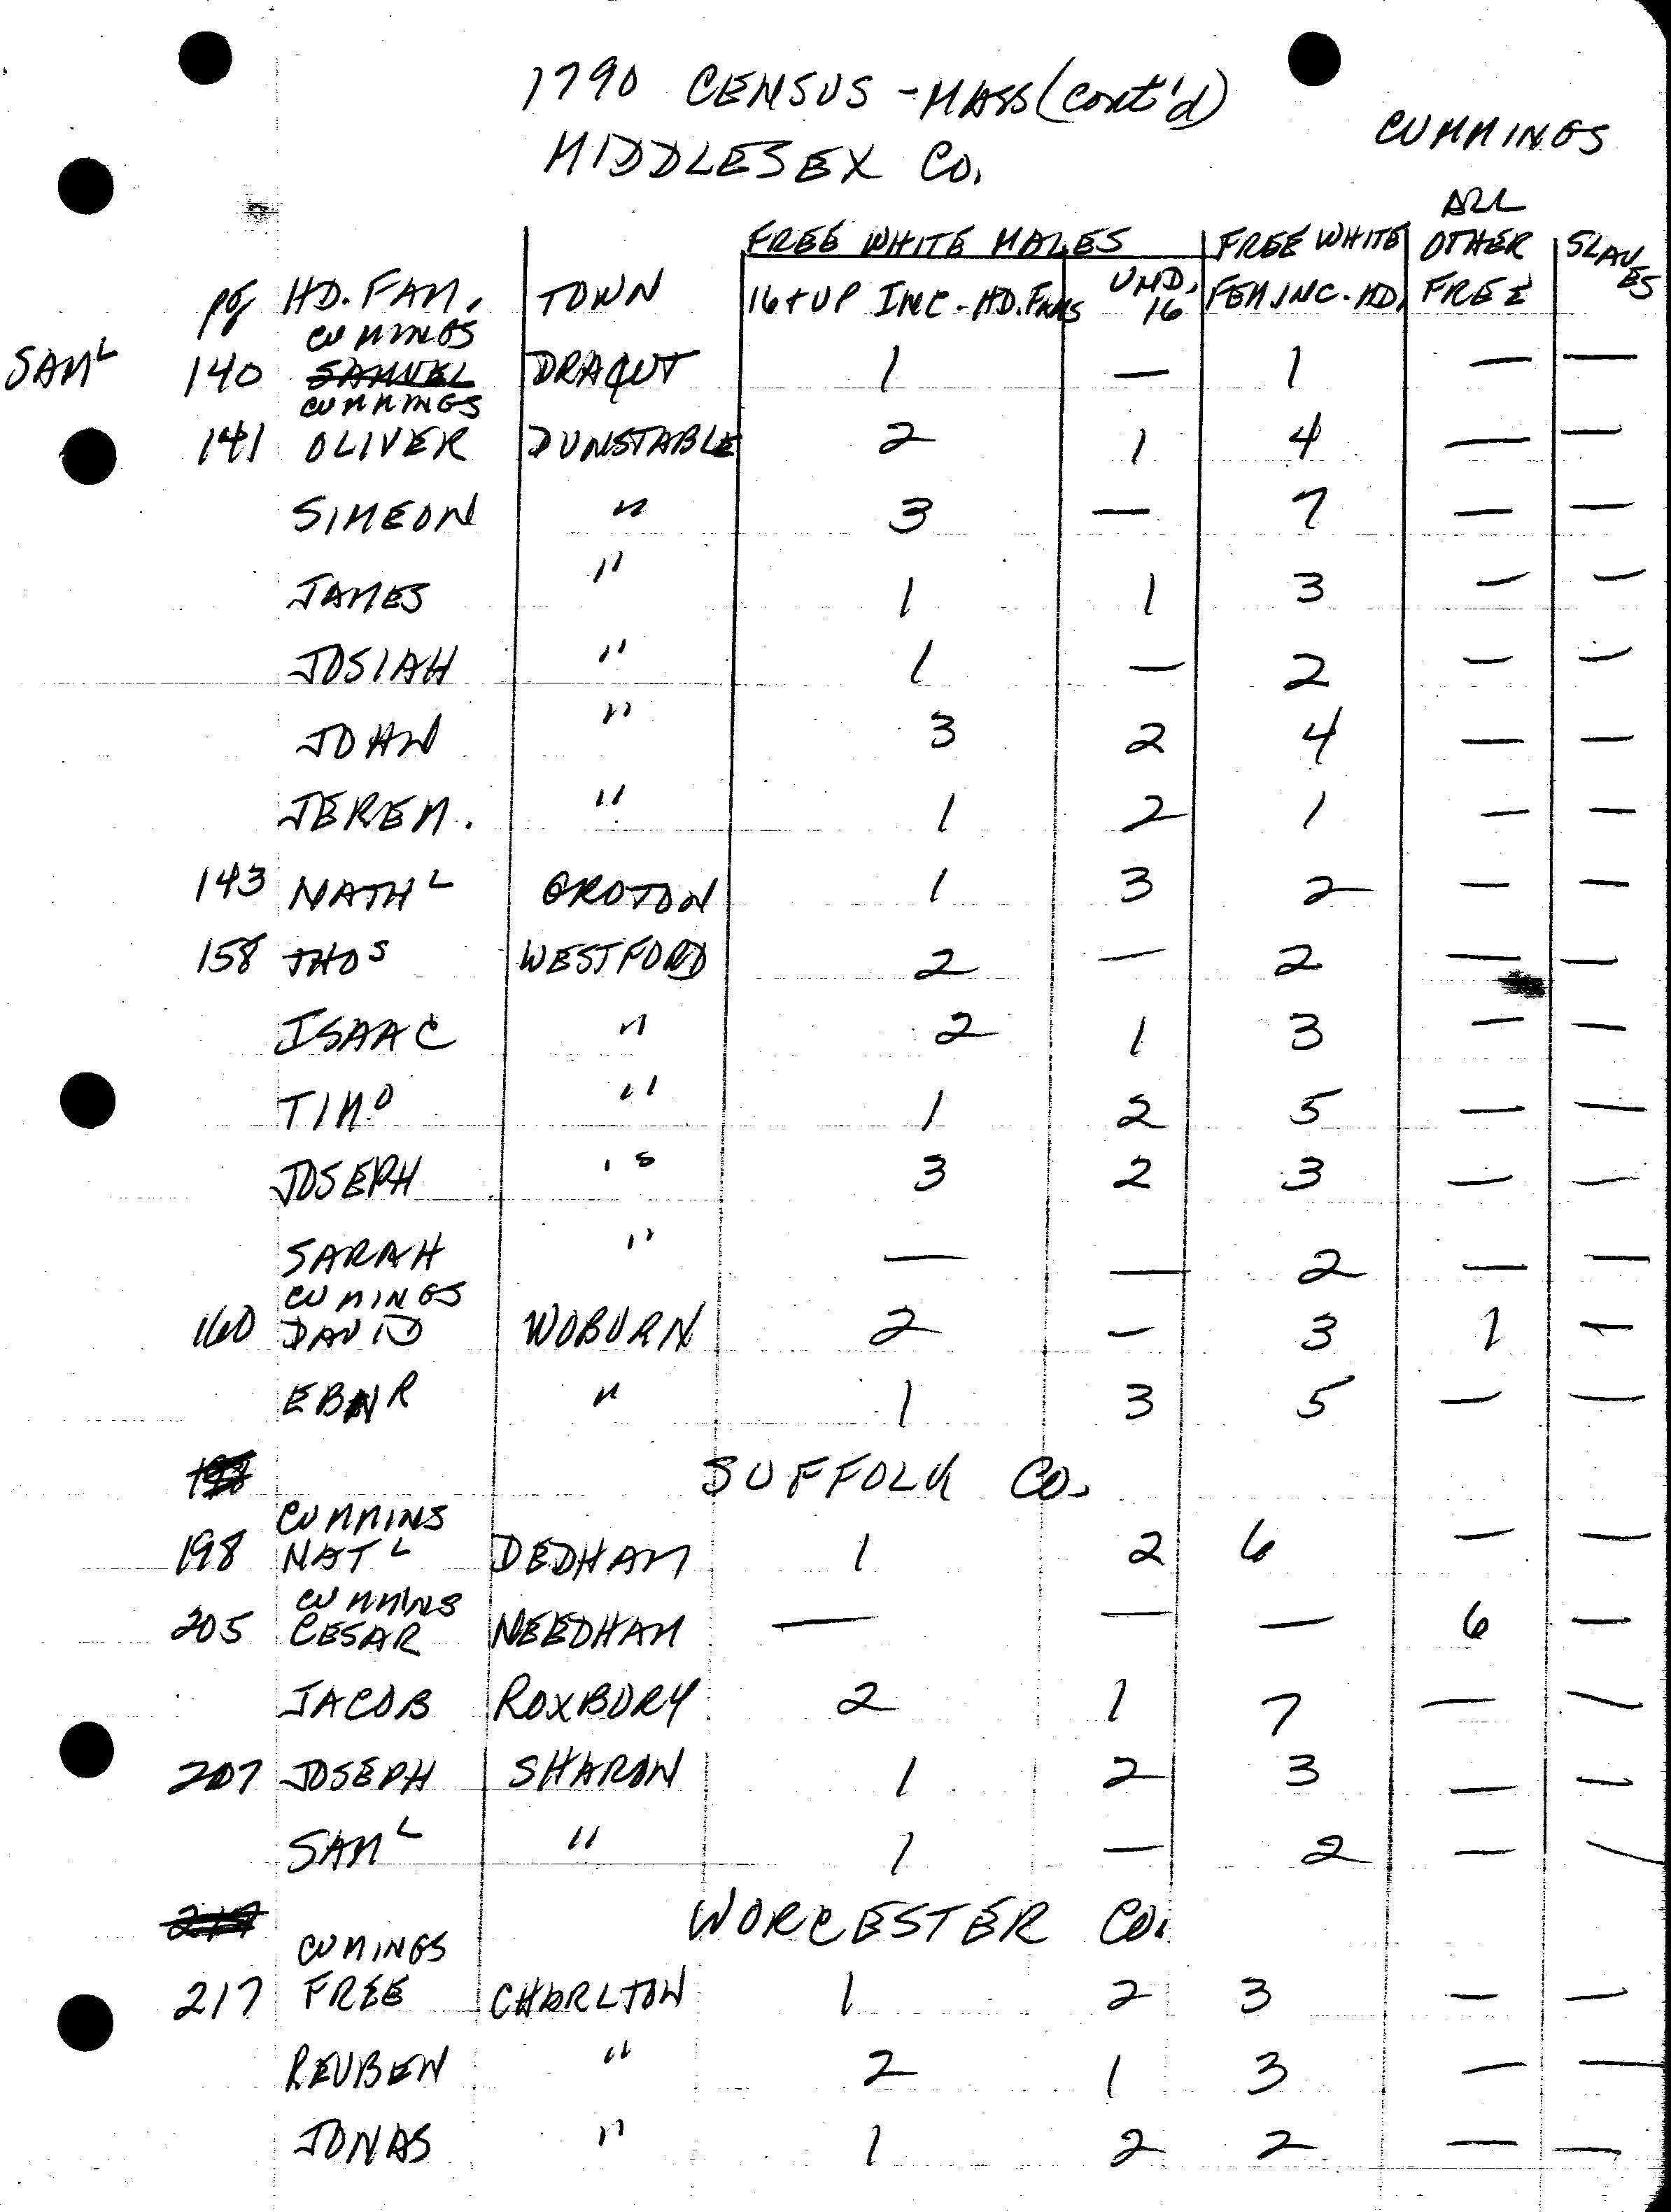 1790 CENSUS - MASS (cont'd)
CUMMINGS
MIDDLESEX CO.
ALL
FREE WHITE MALES FREE WHITE OTHER SLAVES
pg HD. FAM. TOWN 16 + UP INC. - HD. FAMS UND. 16 FEM INC. - HD. FREE
CUMMINGS
SAML 140 SAMUEL DRAQUT 1 — 1 — —
CUMMINGS
141 OLIVER DUNSTABLE 2 1 4 — —
SIMEON " 3 — 7 — —
JAMES " 1 1 3 — —
JOSIAH " 1 — 2 — —
JOHN " 3 2 4 — —
JEREM. " 1 2 1 — —
143 NATHL GROTON 1 3 2 — —
158 THOS WESTFORD 2 — 2 — —
ISAAC " 2 1 3 — —
TIMO " 1 2 5 — —
JOSEPH " 3 2 3 — —
SARAH " — — 2 — —
CUMINGS
160 DAVID WOBURN 2 — 3 1 —
EBNR " 1 3 5 — —
198 SUFFOLK CO.
CUMMINS
198 NATL DEDHAM 1 2 6 — —
CUMMINS
205 CESAR NEEDHAM — — — 6 —
JACOB ROXBURY 2 1 7 — —
207 JOSEPH SHARON 1 2 3 — —
SAML " 1 — 2 — —
217 WORCESTER CO.
CUMINGS
217 FREE CHARLTON 1 2 3 — —
REUBEN " 2 1 3 — —
JONAS " 1 2 2 — —